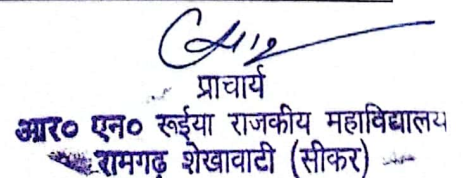 प्राचार्य
आर० एन० रूईया राजकीय महाविद्यालय
रामगढ़ शेखावाटी (सीकर)